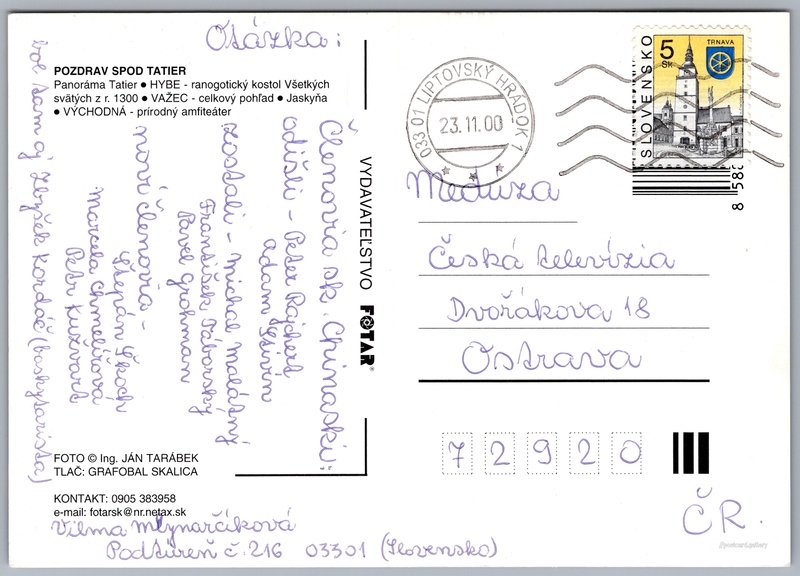 Otázka:
POZDRAV SPOD TATIER
Panoráma Tatier ● HYBE - ranogotický kostol Všetkých
svätých z r. 1300 ● VAŽEC - celkový pohľad ● Jaskyňa
● VÝCHODNÁ - prírodný amfiteáter
Členovia sk. Chinaski:
odišli - Peter Rajchart
adam Stivín
zostali - michal malátný
František Táborský
Pavel Grohman
noví členovia -
Štěpán Škoch
Marcela Chmelířová
Petr Kužvart
bol tam aj Zbyšek Kordáč (baskytarista)
FOTO © Ing. JÁN TARÁBEK
TLAČ: GRAFOBAL SKALICA
KONTAKT: 0905 383958
e-mail: fotarsk@nr.netax.sk
Vilma Mlynarčíková
Podtureň č. 216 03301 (Slovensko)
VYDAVATEĽSTVO FOTAR®
033 01 LIPTOVSKÝ HRÁDOK 1
23.11.00
SLOVENSKO
5
Sk
TRNAVA
8 58
Medúza
Česká televízia
Dvořákova 18
Ostrava
72920
ČR.